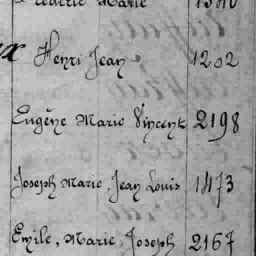 Frédéric Marie 1340
x Henri Jean 1202
Eugène Marie Vincent 2198
Joseph Marie, Jean Louis 1473
Emile, Marie, Joseph 2167